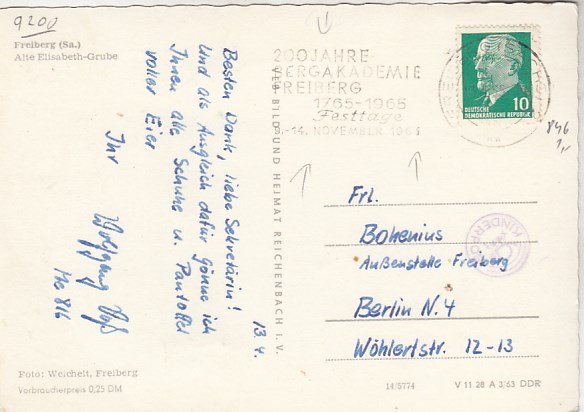 9200
Freiberg (Sa.)
Alte Elisabeth-Grube
Besten Dank, liebe Sekretärin!
Und als Ausgleich dafür gönne ich
Ihnen alle Schuhe u. Pantoffel
voller Eier
Ihr
Wolfgang
13.4.
Foto: Weichelt, Freiberg
Verbraucherpreis 0,25 DM
VEB BILD UND HEIMAT REICHENBACH I. V.
200 JAHRE
BERGAKADEMIE
FREIBERG
1765-1965
Festtage
8.-14. NOVEMBER 1965
10
DEUTSCHE
DEMOKRATISCHE REPUBLIK
846
Frl.
Bohenius
Außenstelle Freiberg
Berlin N. 4
Wöhlertstr. 12-13
14/5774
V 11 28 A 3/63 DDR